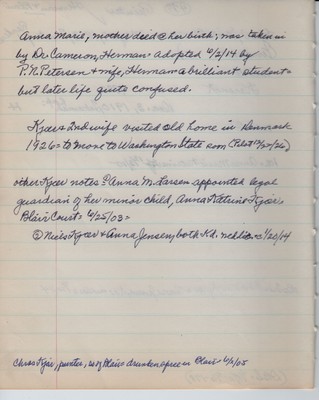 Anna Marie, mother deid @ her birth; was taken in
by Dr. Cameron, Herman. Adopted 6/2/14 by
P. N. Petersen & wife, Herman a brilliant student=
but later life quite confused.
Kjaer & 2nd wife visited old home in Denmark
1926= to move to Washington State soon (Pilot
other Kjaer notes: Anna M. Larsen appointed legal
guardian of her minor child, Anna Katrine Kjaer,
Blair Court= 6/25/03=
Niels Kjaer & Anna Jensen, both Kd. wed 1/20/14
Chras Kjar, painter, Blair drunken spree in Blair 6/2/05